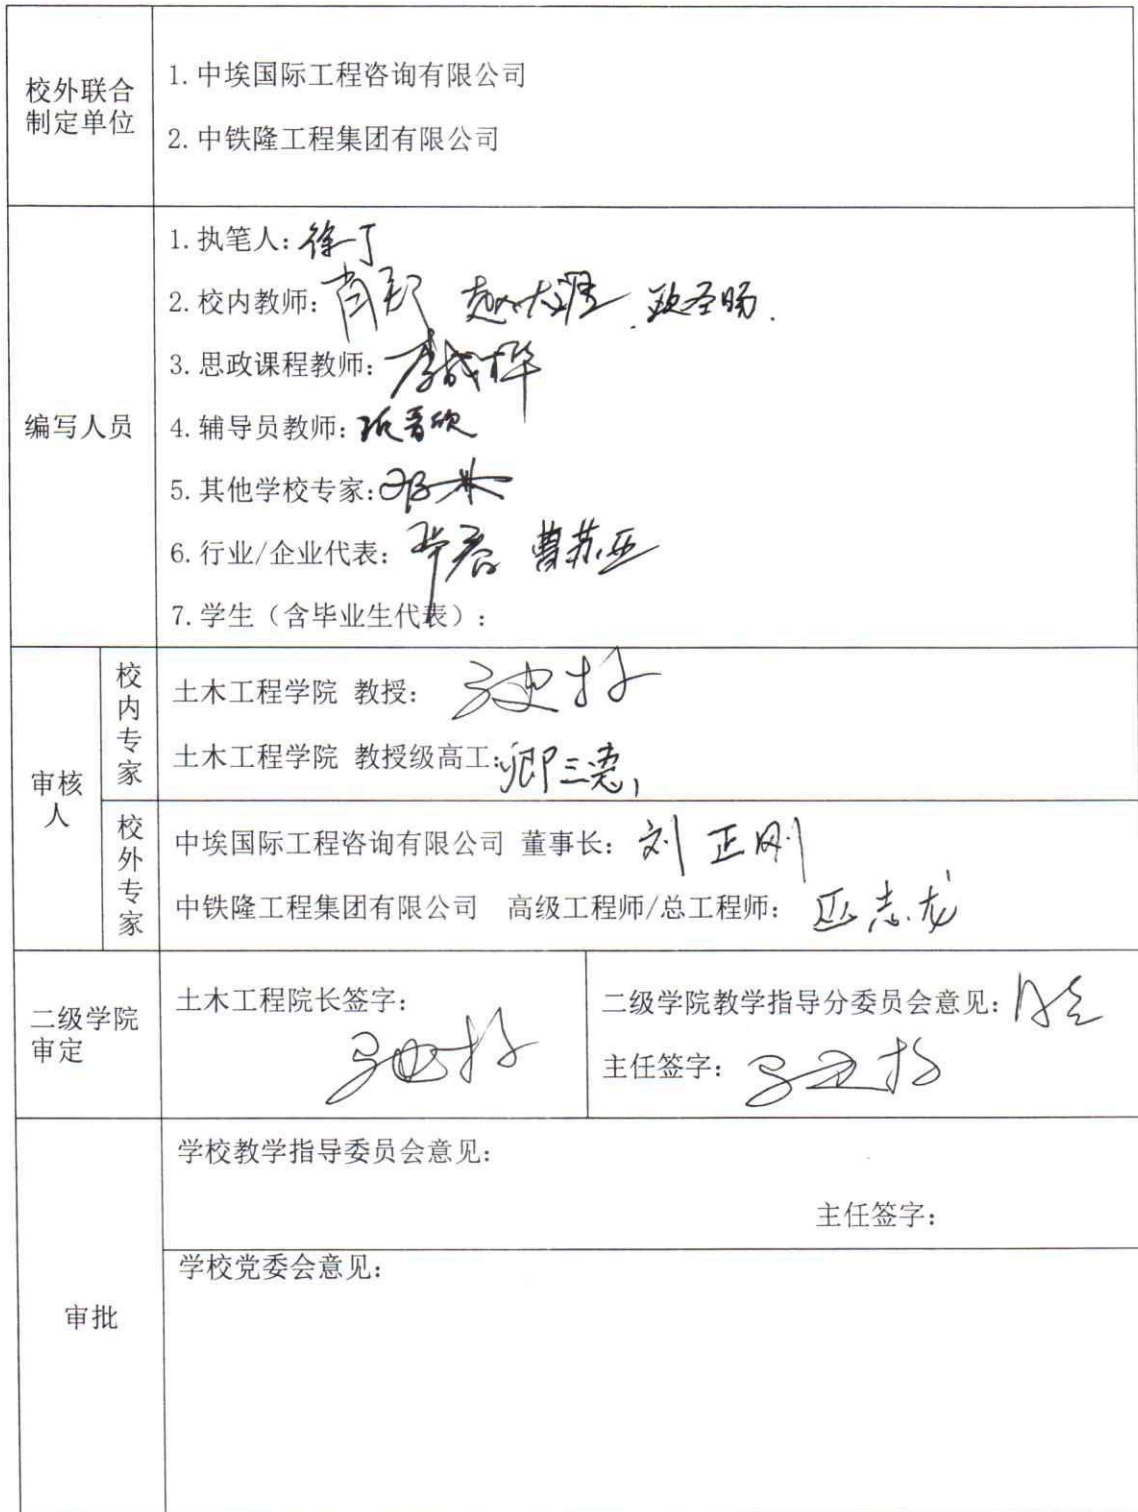 校外联合
制定单位
1.中埃国际工程咨询有限公司
2.中铁隆工程集团有限公司
编写人员
1.执笔人：徐丁
2.校内教师：肖
3.思政课程教师：李成桦
4.辅导员教师：
5.其他学校专家：邓林
6.行业/企业代表： 曹苏亚
7.学生（含毕业生代表）：
审核
人
校内专家
土木工程学院 教授：
土木工程学院 教授级高工：卿三惠
校外专家
中埃国际工程咨询有限公司 董事长：刘正刚
中铁隆工程集团有限公司 高级工程师/总工程师：匹志龙
二级学院
审定
土木工程院长签字：
二级学院教学指导分委员会意见：同意
主任签字：
审批
学校教学指导委员会意见：
主任签字：
学校党委会意见：